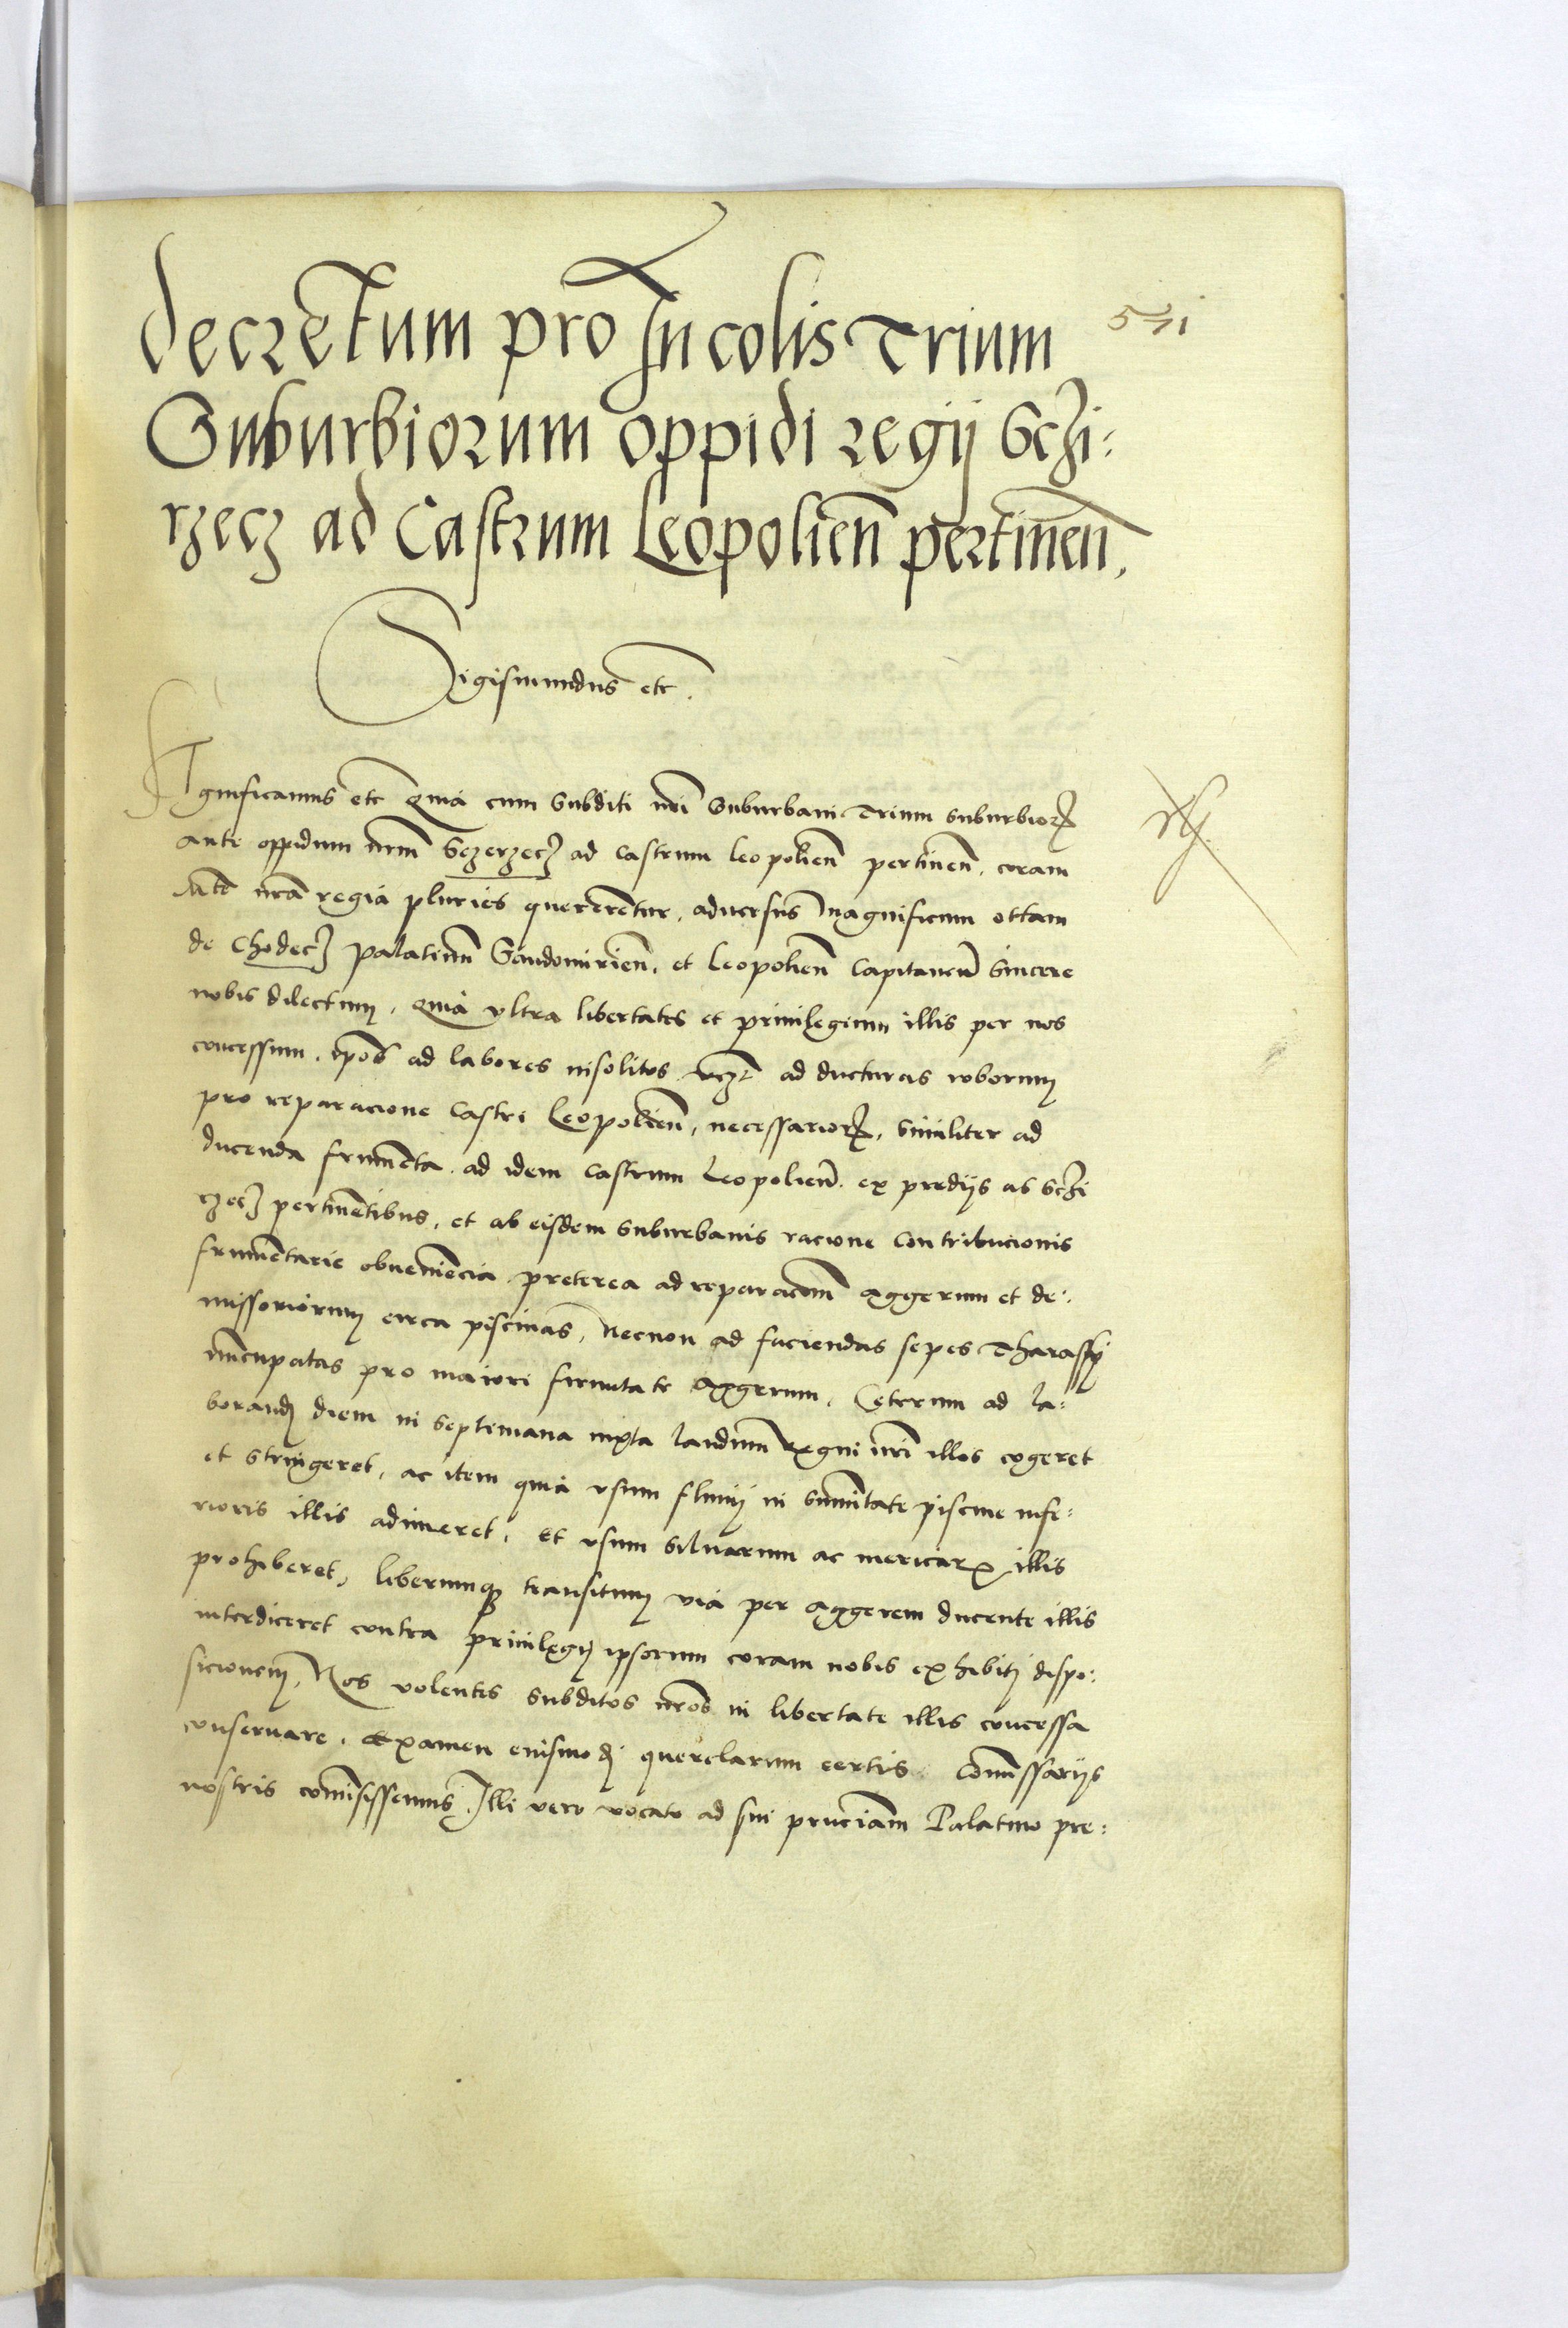 decretum pro Incolis Trium
Suburbiorum oppidi regij Sczi:
rzecz ad Castrum Leopolien̄ pertinen̄,
Sigismundus etc.
Significamus etc Quia cum subditi nr̄i suburbani trium suburbiorꝝ
ante oppidum nr̄m Sczerzecz ad castrum leopolien̄ pertinen̄, coram
Mte nr̄a regia pluries quererentur, aduersus Magnificum ottam
de Chodecz palatinū Sandomirien̄, et leopolien̄ Capitaneū sincere
nobis dilectum, Quia vltra libertates et priuilegium illis per nos
concessum, ip̄os ad labores insolitos vczt ad ducturas roborum
pro reparacione Castri Leopolien̄, necessariorꝝ, similiter ad
ducenda frumēta ad idem castrum Leopolien̄ ex predijs ad Sczi
rzecz pertinētibus, et ab eisdem suburbanis racione contribucionis
frumētarie obueniēcia preterea ad reparacōm aggerum et de:
missoriorum circa piscinas, Necnon ad faciendas sepes Tharassy
nūcupatas pro maiori firmitate aggerum, Ceterum ad la:
borandū diem in septimana iuxta laudum regni nr̄i illos cogeret
et stringeret, ac item quia vsum fluuij in sūmitate piscine infe:
rioris illis adimeret, et vsum siluarum ac mericarꝝ illis
prohiberet, liberumqꝫ transitum via per aggerem ducente illis
interdiceret contra priuilegij ipsorum coram nobis exhibiti dispo:
sicionem, Nos volentes subditos nr̄os in libertate illis concessa
conseruare, Examen eiusmodi querelarum certis Com̄issarijs
nostris com̄isissemus, Illi vero vocato ad sui pn̄ciam Palatino pre: